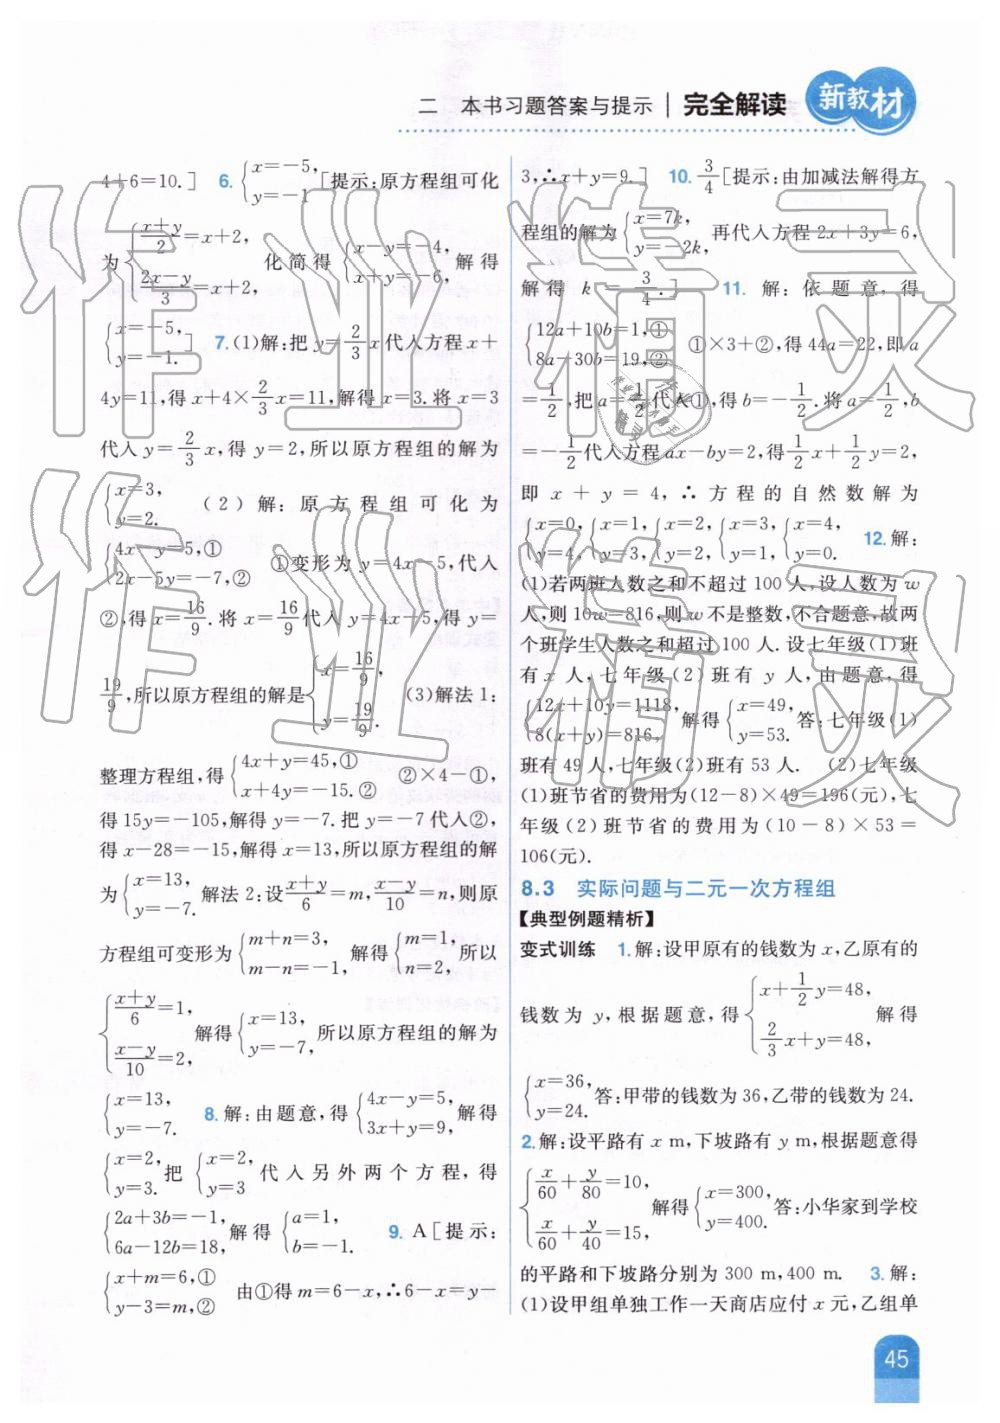 二 本书习题答案与提示 | 完全解读 新教材
4+6=10.] 6. {x=-5, y=-1 [提示:原方程组可化
为 {(x+y)/2=x+2, (2x-y)/3=x+2, 化简得 {x-y=-4, x+y=-6, 解得
{x=-5, y=-1.] 7.(1)解:把y=2/3x代入方程x+
4y=11,得x+4×2/3x=11,解得x=3.将x=3
代入y=2/3x,得y=2,所以原方程组的解为
{x=3, y=2. (2)解:原方程组可化为
{4x-y=5,① 2x-5y=-7,② ①变形为y=4x-5,代入
②,得x=16/9.将x=16/9代入y=4x-5,得y=
19/9,所以原方程组的解是 {x=16/9, y=19/9. (3)解法1:
整理方程组,得 {4x+y=45,① x+4y=-15.② ②×4-①,
得15y=-105,解得y=-7.把y=-7代入②,
得x-28=-15,解得x=13,所以原方程组的解
为 {x=13, y=-7. 解法2:设(x+y)/6=m,(x-y)/10=n,则原
方程组可变形为 {m+n=3, m-n=-1, 解得 {m=1, n=2, 所以
{(x+y)/6=1, (x-y)/10=2, 解得 {x=13, y=-7, 所以原方程组的解为
{x=13, y=-7. 8.解:由题意,得 {4x-y=5, 3x+y=9, 解得
{x=2, y=3. 把 {x=2, y=3 代入另外两个方程,得
{2a+3b=-1, 6a-12b=18, 解得 {a=1, b=-1. 9. A[提示:
{x+m=6,① y-3=m,② 由①得m=6-x,∴6-x=y-
3,∴x+y=9.] 10. 3/4[提示:由加减法解得方
程组的解为 {x=7k, y=-2k, 再代入方程2x+3y=6,
解得k=3/4.] 11. 解:依题意,得
{12a+10b=1,① 8a-30b=19,② ①×3+②,得44a=22,即a
=1/2,把a=1/2代入①,得b=-1/2.将a=1/2,b
=-1/2代入方程ax-by=2,得1/2x+1/2y=2,
即x+y=4,∴方程的自然数解为
{x=0, y=4, {x=1, y=3, {x=2, y=2, {x=3, y=1, {x=4, y=0. 12.解:
(1)若两班人数之和不超过100人,设人数为w
人,则10w=816,则w不是整数,不合题意,故两
个班学生人数之和超过100人.设七年级(1)班
有x人,七年级(2)班有y人,由题意,得
{12x+10y=1118, 8(x+y)=816, 解得 {x=49, y=53. 答:七年级(1)
班有49人,七年级(2)班有53人. (2)七年级
(1)班节省的费用为(12-8)×49=196(元),七
年级(2)班节省的费用为(10-8)×53=
106(元).
8.3 实际问题与二元一次方程组
【典型例题精析】
变式训练 1.解:设甲原有的钱数为x,乙原有的
钱数为y,根据题意,得 {x+1/2y=48, 2/3x+y=48, 解得
{x=36, y=24. 答:甲带的钱数为36,乙带的钱数为24.
2.解:设平路有x m,下坡路有y m,根据题意得
{x/60+y/80=10, x/60+y/40=15, 解得 {x=300, y=400. 答:小华家到学校
的平路和下坡路分别为300 m,400 m. 3.解:
(1)设甲组单独工作一天商店应付x元,乙组单
45
作业精灵
作业精灵